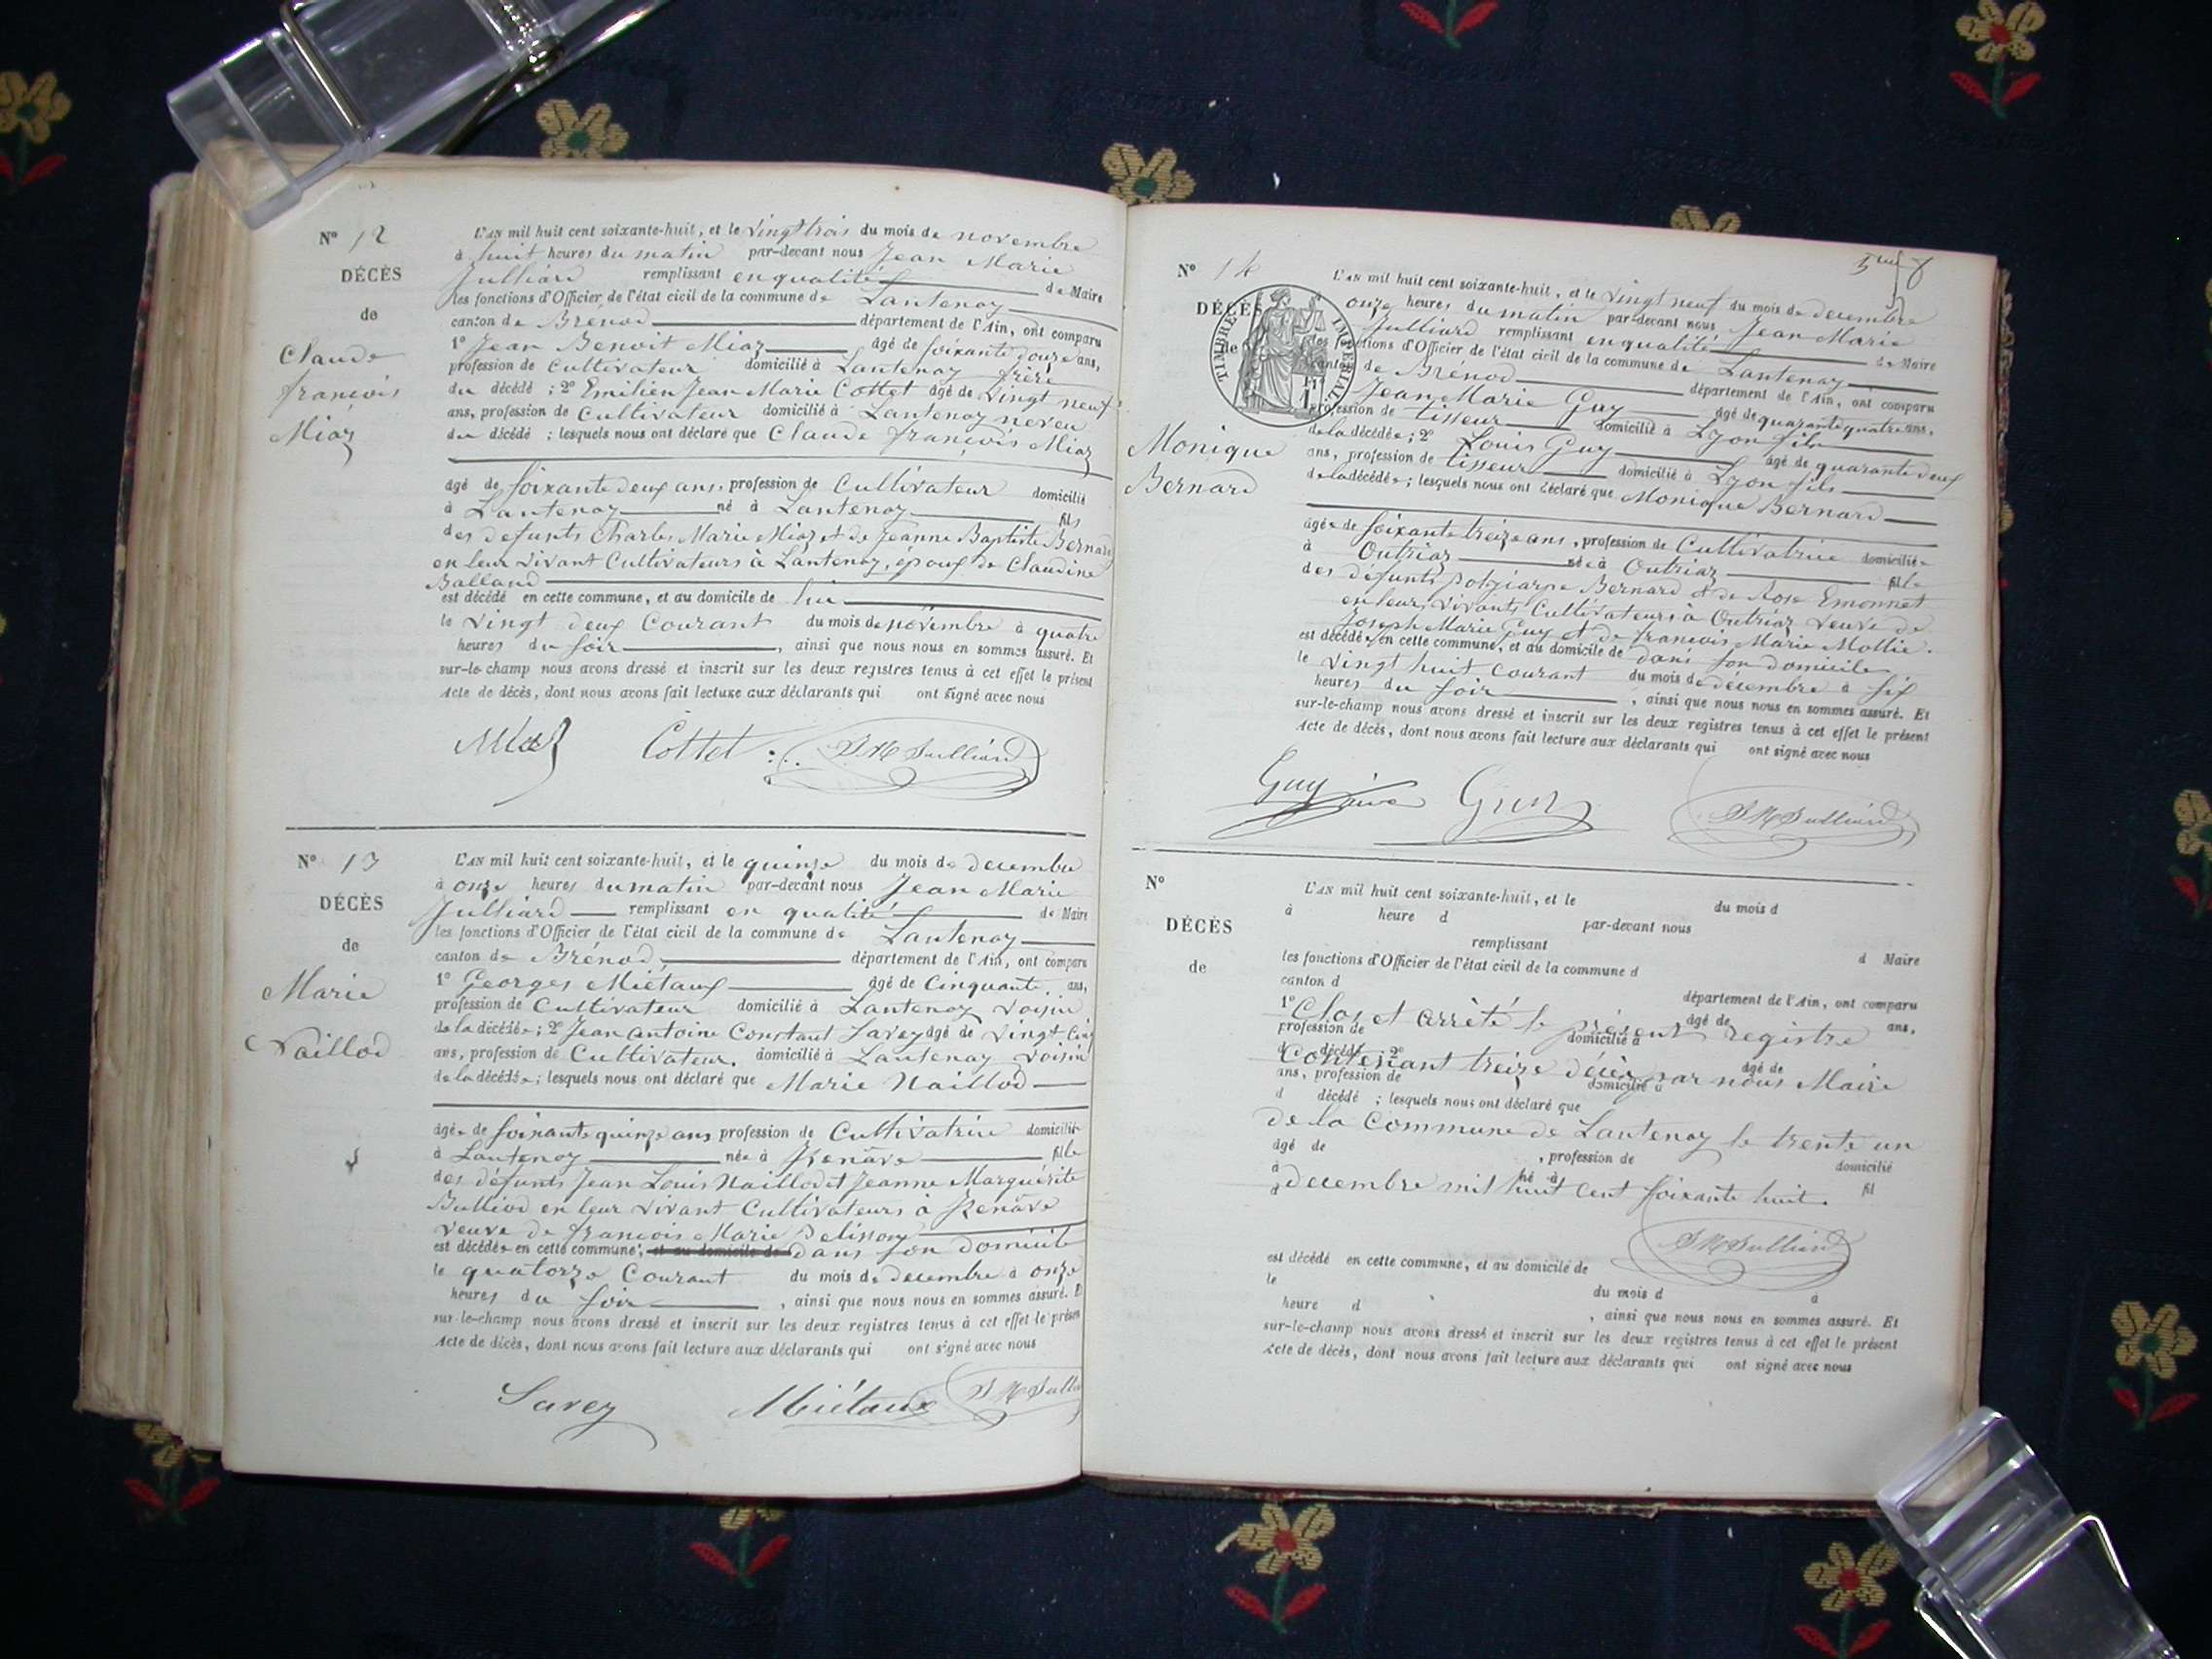 Nº 12
DÉCÈS
de
Claude
françois
Miaz
L'AN mil huit cent soixante-huit, et le Vingt trois du mois de novembre
à huit heures du matin par-devant nous Jean Marie
Julliard remplissant en qualité de Maire
les fonctions d'Officier de l'état civil de la commune de Lantenay
canton de Brenod département de l'Ain, ont comparu
1º Jean Benoit Miaz âgé de soixante douze ans,
profession de Cultivateur domicilié à Lantenay frère
du décédé ; 2º Emilien Jean Marie Cottet âgé de Vingt neuf
ans, profession de Cultivateur domicilié à Lantenay neveu
du décédé ; lesquels nous ont déclaré que Claude françois Miaz
âgé de soixante deux ans, profession de Cultivateur domicilié
à Lantenay né à Lantenay fils
des defunts Charles Marie Miaz et de Jeanne Baptiste Bernard
en leur vivant Cultivateurs à Lantenay, époux de Claudine
Balland
est décédé en cette commune, et au domicile de lui
le Vingt deux Courant du mois de novembre à quatre
heures du soir , ainsi que nous nous en sommes assuré. Et
sur-le-champ nous avons dressé et inscrit sur les deux registres tenus à cet effet le présent
Acte de décès, dont nous avons fait lecture aux déclarants qui ont signé avec nous
Miaz Cottet J. M Julliard
Nº 13
DÉCÈS
de
Marie
Naillod
L'AN mil huit cent soixante-huit, et le quinze du mois de decembre
à onze heures du matin par-devant nous Jean Marie
Julliard remplissant en qualité de Maire
les fonctions d'Officier de l'état civil de la commune de Lantenay
canton de Brénod, département de l'Ain, ont comparu
1º Georges Miétaux âgé de Cinquante ans,
profession de Cultivateur domicilié à Lantenay Voisin
de la décédée ; 2º Jean antoine Constant Savey âgé de Vingt Cinq
ans, profession de Cultivateur. domicilié à Lantenay Voisin
de la décédée ; lesquels nous ont déclaré que Marie Naillod
âgée de soixante quinze ans profession de Cultivatrice domiciliée
à Lantenay née à fille
des défunts Jean Louis Naillod et Jeanne Marguérite
Bulliod en leur vivant Cultivateurs à
Veuve de françois Marie Pelisson
est décédée en cette commune, et au domicile de dans son domicile
le quatorze Courant du mois de decembre à onze
heures du soir , ainsi que nous nous en sommes assuré. E
sur-le-champ nous avons dressé et inscrit sur les deux registres tenus à cet effet le présen
Acte de décès, dont nous avons fait lecture aux déclarants qui ont signé avec nous
Savey Miétaux J M Jullia
Nº 14
DÉCÈS
de
TIMBRE IMPERIAL
Monique
Bernard
L'AN mil huit cent soixante-huit, et le Vingt neuf du mois de decembre
onze heures du matin par-devant nous Jean Marie
Julliard remplissant en qualité de Maire
les fonctions d'Officier de l'état civil de la commune de Lantenay
canton de Brénod département de l'Ain, ont comparu
Jean Marie Guy âgé de quarante quatre ans,
profession de tisseur domicilié à Lyon fils
de la décédée ; 2º Louis Guy âgé de quarante deux
ans, profession de tisseur domicilié à Lyon fils
de la décédée ; lesquels nous ont déclaré que Monique Bernard
âgée de soixante treize ans, profession de Cultivatrice domiciliée
à Outriaz née à Outriaz fille
des défunts Bernard et de Rose Emonnet
en leurs vivants Cultivateurs à Outriaz Veuve de
Joseph Marie Guy et de françois Marie Mollie.
est décédée en cette commune, et au domicile de dans son domicile
le Vingt huit Courant du mois de décembre à six
heures du soir , ainsi que nous nous en sommes assuré. Et
sur-le-champ nous avons dressé et inscrit sur les deux registres tenus à cet effet le présent
Acte de décès, dont nous avons fait lecture aux déclarants qui ont signé avec nous
Guy Guy J M Julliard
Nº
DÉCÈS
de
L'AN mil huit cent soixante-huit, et le du mois d
à heure d par-devant nous
remplissant d Maire
les fonctions d'Officier de l'état civil de la commune d
canton d département de l'Ain, ont comparu
1º âgé de ans,
Clos et arrêté le présent registre
profession de domicilié à
d décédé 2º âgé de
Contenant treize décès par nous Maire
ans, profession de domicilié à
d décédé ; lesquels nous ont déclaré que
de la Commune de Lantenay le trente un
âgé de , profession de domicilié
à né à fil
decembre mil huit cent soixante huit.
d
J M Julliard
est décédé en cette commune, et au domicile de
le du mois d à
heure d , ainsi que nous nous en sommes assuré. Et
sur-le-champ nous avons dressé et inscrit sur les deux registres tenus à cet effet le présent
Acte de décès, dont nous avons fait lecture aux déclarants qui ont signé avec nous